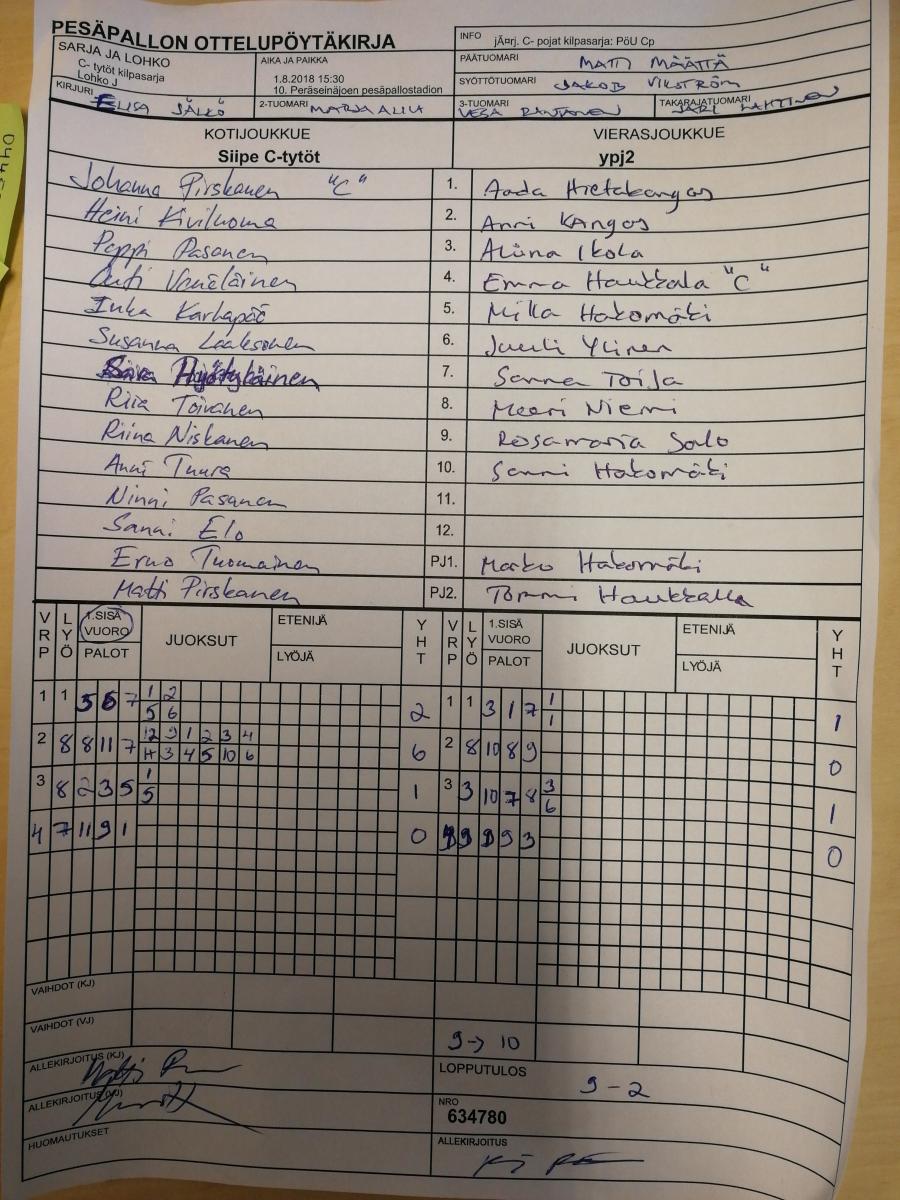 PESÄPALLON OTTELUPÖYTÄKIRJA
INFO jÄ¤rj. C- pojat kilpasarja: PöU Cp
SARJA JA LOHKO
C- tytöt kilpasarja
Lohko J
AIKA JA PAIKKA
1.8.2018 15:30
10. Peräseinäjoen pesäpallostadion
PÄÄTUOMARI MATTI MÄÄTTÄ
SYÖTTÖTUOMARI JAKOB VIKSTRÖM
KIRJURI ELISA JÄLKÖ
2-TUOMARI
3-TUOMARI VESA RANTANEN
TAKARAJATUOMARI JARI LAHTINEN
KOTIJOUKKUE VIERASJOUKKUE
Siipe C-tytöt ypj2
Johanna Pirskanen "C" 1. Aada Hietakangas
Heini Kiviluoma 2. Anni Kangas
Peppi Pasanen 3. Aliina Ikola
Outi Venäläinen 4. Emma Haukkala "C"
Inka Karhapää 5. Milla Hakomäki
Susanna Laaksonen 6. Juuli Ylinen
Hyötyläinen 7. Sanna Toija
Riia Toivanen 8. Meeri Niemi
Riina Niskanen 9. Rosamaria Salo
Anni Tuura 10. Sanni Hakomäki
Ninni Pasanen 11.
Sanni Elo 12.
Erno Tuomainen PJ1. Marko Hakomäki
Matti Pirskanen PJ2. Tommi Haukkala
VRP LYÖ 1.SISÄ VUORO PALOT JUOKSUT ETENIJÄ LYÖJÄ YHT VRP LYÖ 1.SISÄ VUORO PALOT JUOKSUT ETENIJÄ LYÖJÄ YHT
1 1 5 6 7 1 2 1 1 3 1 7 1
5 6 2 1 1
2 8 8 11 7 12 9 1 2 3 4 2 8 10 8 9
3 4 5 10 6 6 0
3 8 2 3 5 1 3 3 10 7 8 3
5 1 6 1
4 7 11 9 1 0 9 9 3 0
VAIHDOT (KJ)
VAIHDOT (VJ) 9→ 10
ALLEKIRJOITUS (KJ)
LOPPUTULOS 9 - 2
ALLEKIRJOITUS (VJ)
NRO
634780
HUOMAUTUKSET
ALLEKIRJOITUS